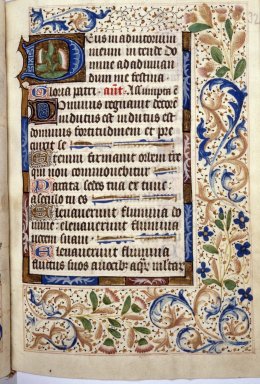 Deus in adiutorium
meum intende Do
mine ad adiuuan
dum me festina
Gloria patri. añt. Assumpta ē
Dominus regnauit decorē
indutus est indutus est
dominus fortitudinem et pre
cinxit se
Etenim firmauit orbem tre
qui non commouebitur
Parata sedes tua ex tunc
a seculo tu es
Eleuauerunt flumina do
mine eleuauerunt flumina
uocem suam
Eleuauerunt flumina
fluctus suos a uocib; aqr̄ multar̄